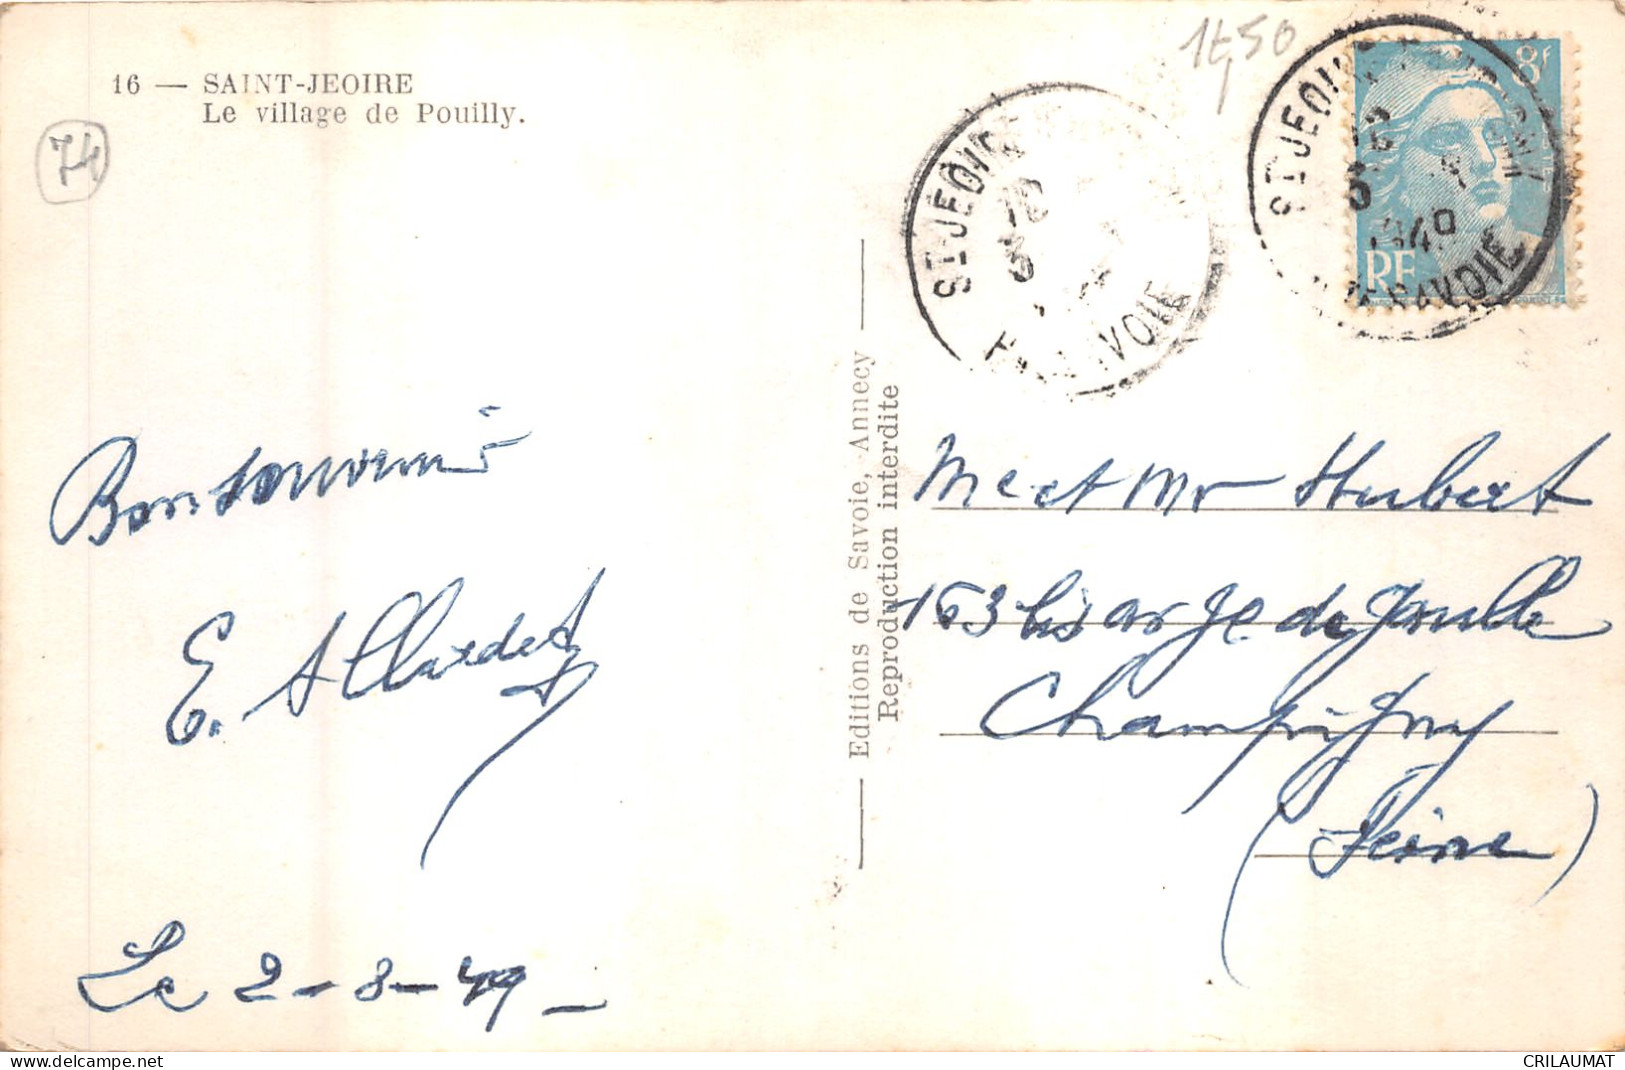 16 — SAINT-JEOIRE
Le village de Pouilly.
74
1f,50
ST JEOIRE
Hte SAVOIE
ST JEOIRE
1949
Hte SAVOIE
8f
RF
Editions de Savoie, Annecy
Reproduction interdite
Bon souvenir
E. Allardet
Le 2-8-49
Me et Mr Hubert
153 bis av Je de
Champigny
(Seine)
CRILAUMAT